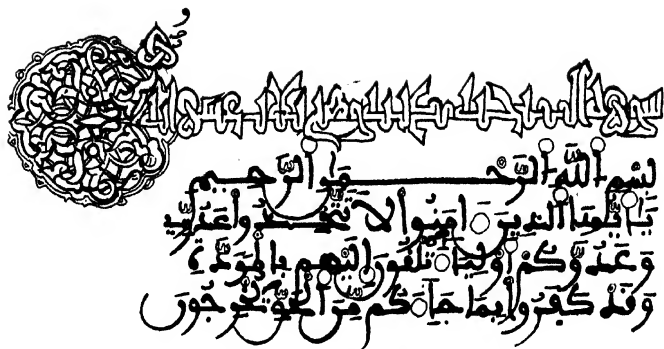 سورة
بِسْمِ اللَّهِ الرَّحْمَٰنِ الرَّحِيمِ
يَا أَيُّهَا الَّذِينَ ءَامَنُوا لَا تَتَّخِذُوا عَدُوِّي
وَعَدُوَّكُمْ أَوْلِيَاءَ تُلْقُونَ إِلَيْهِم بِالْمَوَدَّةِ
وَقَدْ كَفَرُوا بِمَا جَاءَكُم مِّنَ الْحَقِّ يُخْرِجُونَ